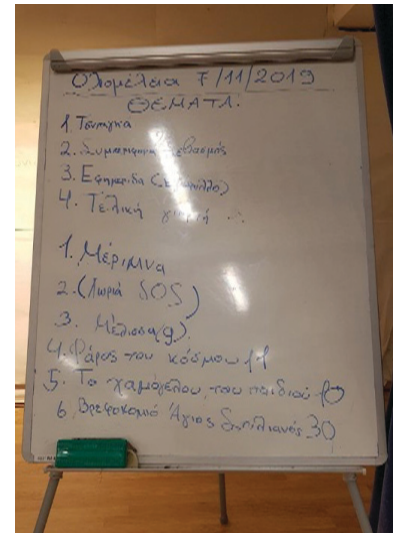 Ολομέλεια 7/11/2019
ΘΕΜΑΤΑ.
1. Τσίπηκα
2. Συμπεριφορά Σεβασμός
3. Εφημερίδα
4. Τελική γιορτή
1. Μέριμνα
2. (Χωριά SOS)
3. Μέλισσα (9)
4. Φάρος του κόσμου 11
5. Το χαμόγελου του παιδιού 10
6. Βρεφοκομιό Άγιος Στυλιανός 30